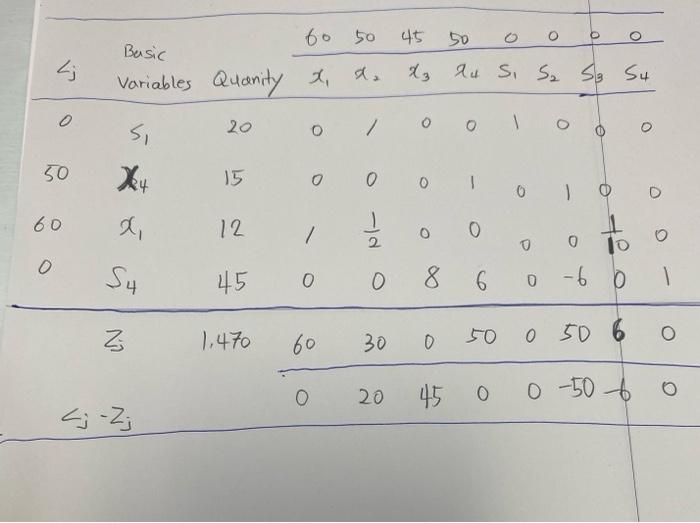 60 50 45 50 0 0 0 0
Cj Basic Variables Quanity x₁ x₂ x₃ x₄ S₁ S₂ S₃ S₄
0 S₁ 20 0 1 0 0 1 0 0 0
50 x₄ 15 0 0 0 1 0 1 0 0
60 x₁ 12 1 1/2 0 0 0 0 1/10 0
0 S₄ 45 0 0 8 6 0 -6 0 1
Zj 1,470 60 30 0 50 0 50 6 0
Cj-Zj 0 20 45 0 0 -50 -6 0